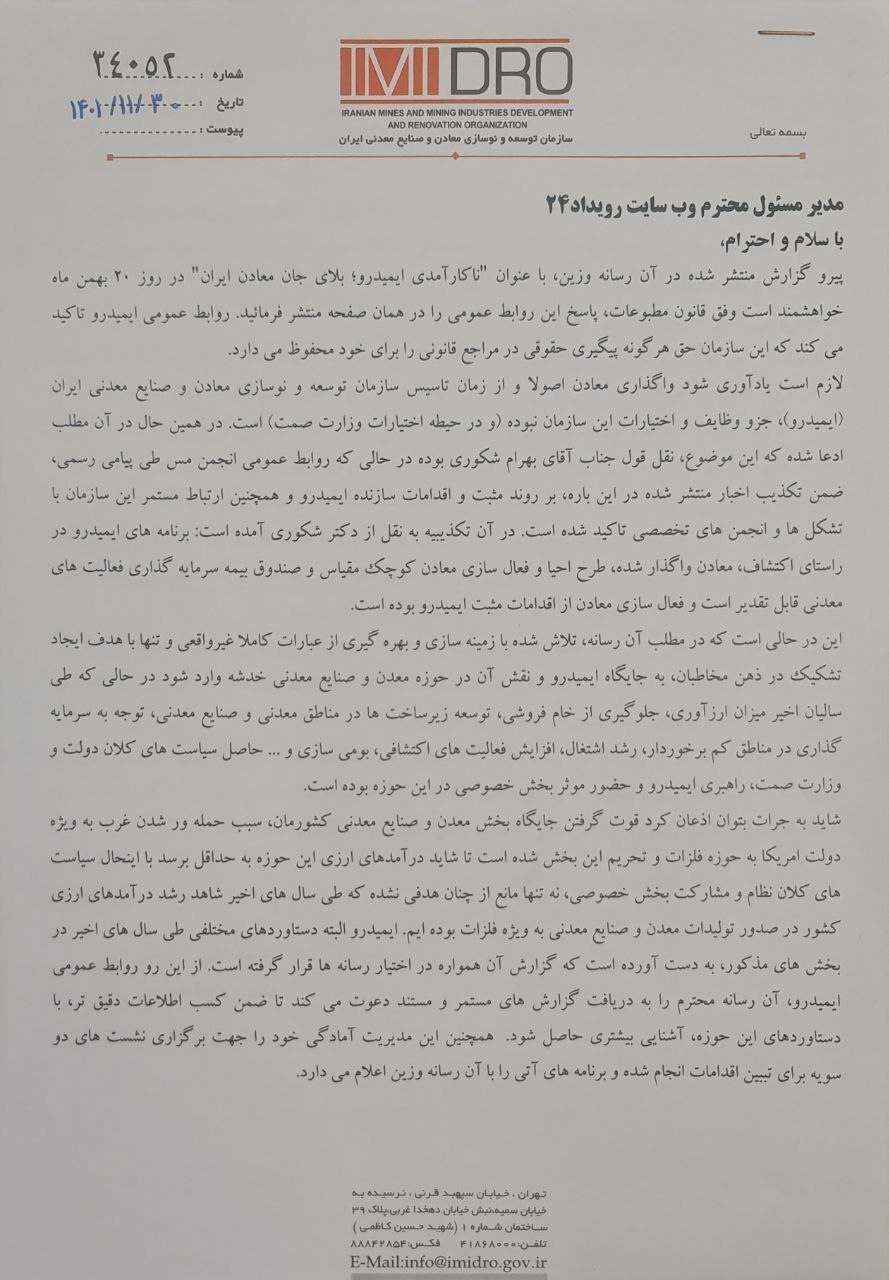 بسمه تعالی
IMIDRO
IRANIAN MINES AND MINING INDUSTRIES DEVELOPMENT
AND RENOVATION ORGANIZATION
سازمان توسعه و نوسازی معادن و صنایع معدنی ایران
شماره : ۳۴۰۵۲
تاریخ : ۱۴۰۱/۱۱/۳۰
پیوست :
مدیر مسئول محترم وب سایت رویداد۲۴
با سلام و احترام،
پیرو گزارش منتشر شده در آن رسانه وزین، با عنوان "ناکارآمدی ایمیدرو؛ بلای جان معادن ایران" در روز ۲۰ بهمن ماه
خواهشمند است وفق قانون مطبوعات، پاسخ این روابط عمومی را در همان صفحه منتشر فرمائید. روابط عمومی ایمیدرو تاکید
می کند که این سازمان حق هرگونه پیگیری حقوقی در مراجع قانونی را برای خود محفوظ می دارد.
لازم است یادآوری شود واگذاری معادن اصولا و از زمان تاسیس سازمان توسعه و نوسازی معادن و صنایع معدنی ایران
(ایمیدرو)، جزو وظایف و اختیارات این سازمان نبوده (و در حیطه اختیارات وزارت صمت) است. در همین حال در آن مطلب
ادعا شده که این موضوع، نقل قول جناب آقای بهرام شکوری بوده در حالی که روابط عمومی انجمن مس طی پیامی رسمی،
ضمن تکذیب اخبار منتشر شده در این باره، بر روند مثبت و اقدامات سازنده ایمیدرو و همچنین ارتباط مستمر این سازمان با
تشکل ها و انجمن های تخصصی تاکید شده است. در آن تکذیبیه به نقل از دکتر شکوری آمده است: برنامه های ایمیدرو در
راستای اکتشاف، معادن واگذار شده، طرح احیا و فعال سازی معادن کوچک مقیاس و صندوق بیمه سرمایه گذاری فعالیت های
معدنی قابل تقدیر است و فعال سازی معادن از اقدامات مثبت ایمیدرو بوده است.
این در حالی است که در مطلب آن رسانه، تلاش شده با زمینه سازی و بهره گیری از عبارات کاملا غیرواقعی و تنها با هدف ایجاد
تشکیک در ذهن مخاطبان، به جایگاه ایمیدرو و نقش آن در حوزه معدن و صنایع معدنی خدشه وارد شود در حالی که طی
سالیان اخیر میزان ارزآوری، جلوگیری از خام فروشی، توسعه زیرساخت ها در مناطق معدنی و صنایع معدنی، توجه به سرمایه
گذاری در مناطق کم برخوردار، رشد اشتغال، افزایش فعالیت های اکتشافی، بومی سازی و ... حاصل سیاست های کلان دولت و
وزارت صمت، راهبری ایمیدرو و حضور موثر بخش خصوصی در این حوزه بوده است.
شاید به جرات بتوان اذعان کرد قوت گرفتن جایگاه بخش معدن و صنایع معدنی کشورمان، سبب حمله ور شدن غرب به ویژه
دولت امریکا به حوزه فلزات و تحریم این بخش شده است تا شاید درآمدهای ارزی این حوزه به حداقل برسد با اینحال سیاست
های کلان نظام و مشارکت بخش خصوصی، نه تنها مانع از چنان هدفی نشده که طی سال های اخیر شاهد رشد درآمدهای ارزی
کشور در صدور تولیدات معدن و صنایع معدنی به ویژه فلزات بوده ایم. ایمیدرو البته دستاوردهای مختلفی طی سال های اخیر در
بخش های مذکور، به دست آورده است که گزارش آن همواره در اختیار رسانه ها قرار گرفته است. از این رو روابط عمومی
ایمیدرو، آن رسانه محترم را به دریافت گزارش های مستمر و مستند دعوت می کند تا ضمن کسب اطلاعات دقیق تر، با
دستاوردهای این حوزه، آشنایی بیشتری حاصل شود. همچنین این مدیریت آمادگی خود را جهت برگزاری نشست های دو
سویه برای تبیین اقدامات انجام شده و برنامه های آتی را با آن رسانه وزین اعلام می دارد.
تهران ، خیابان سپهبد قرنی ، نرسیده به
خیابان سمیه،نبش خیابان دهخدا غربی،پلاک ۳۹
ساختمان شماره ۱ (شهید حسین کاظمی )
تلفن:۴۱۸۶۸۰۰۰ فکس:۸۸۸۴۲۸۵۴
E-Mail:info@imidro.gov.ir